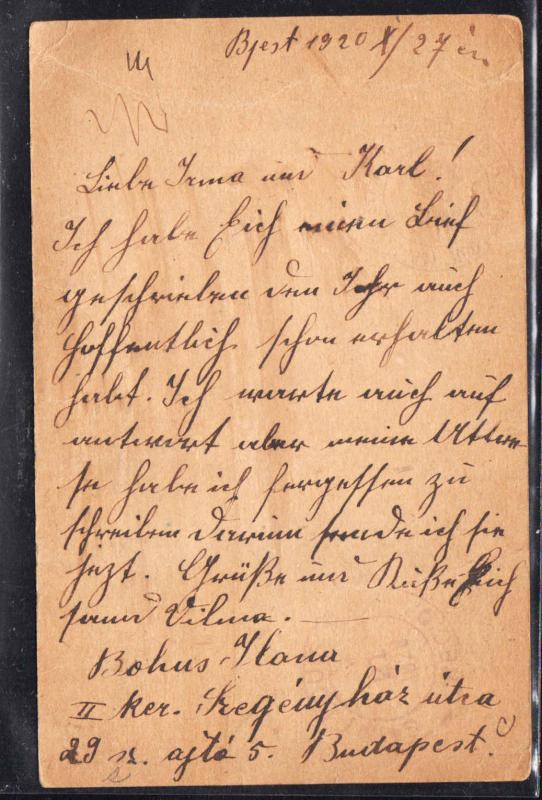 Bpest 1920 X/27 én
Liebe Irma und Karl!
Ich habe Eich einen Brief
geschrieben den Ihr auch
hoffentlich schon erhalten
habt. Ich warte auch auf
antwort aber meine Attre
se habe ich fergessen zu
schreiben darum sende ich sie
jezt. Grüße und Küße Eich
samt Vilma.
Bohus Ilona
II ker. Szegényház útca
29 sz. ajtó 5. Budapest.